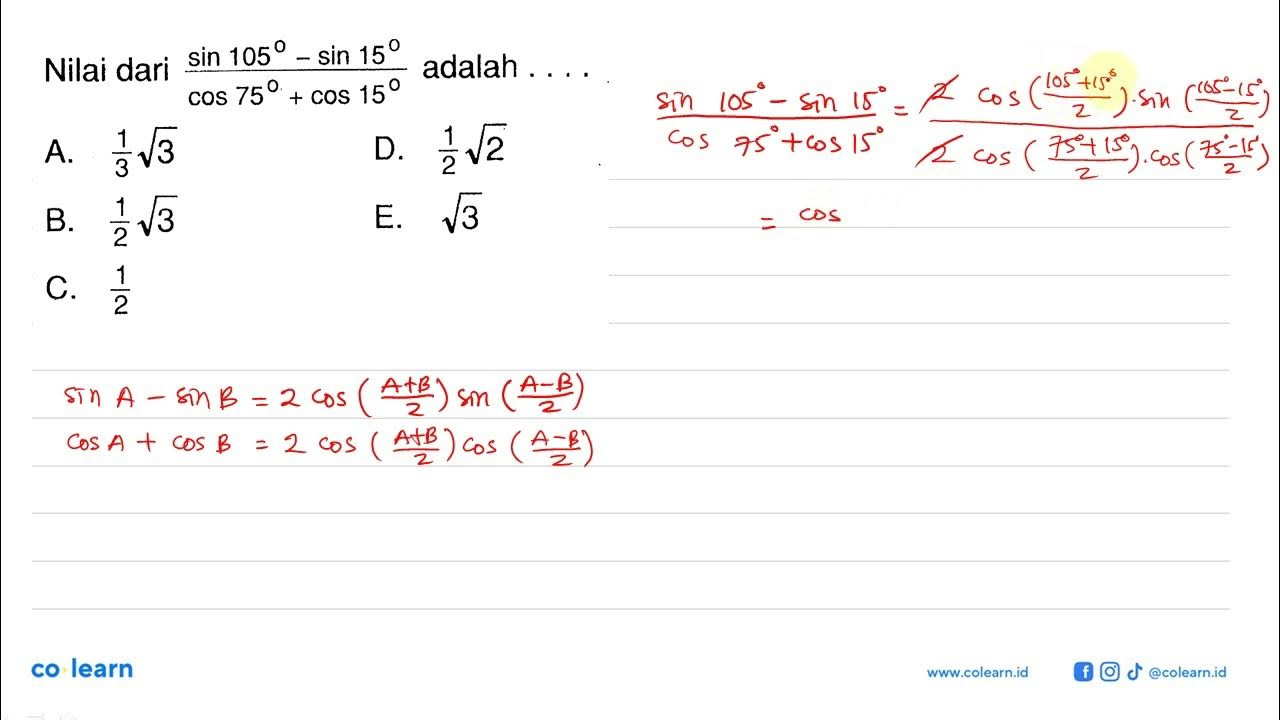 Nilai dari (sin 105° − sin 15°)/(cos 75° + cos 15°) adalah . . . .
A. 1/3 √3
B. 1/2 √3
C. 1/2
D. 1/2 √2
E. √3
(sin 105° − sin 15°)/(cos 75° + cos 15°) = (2 cos ((105° + 15°)/2) . sin ((105° − 15°)/2))/(2 cos ((75° + 15°)/2) . cos ((75° − 15°)/2))
= cos
sin A − sin B = 2 cos ((A+B)/2) sin ((A−B)/2)
cos A + cos B = 2 cos ((A+B)/2) cos ((A−B)/2)
co learn
www.colearn.id
@colearn.id